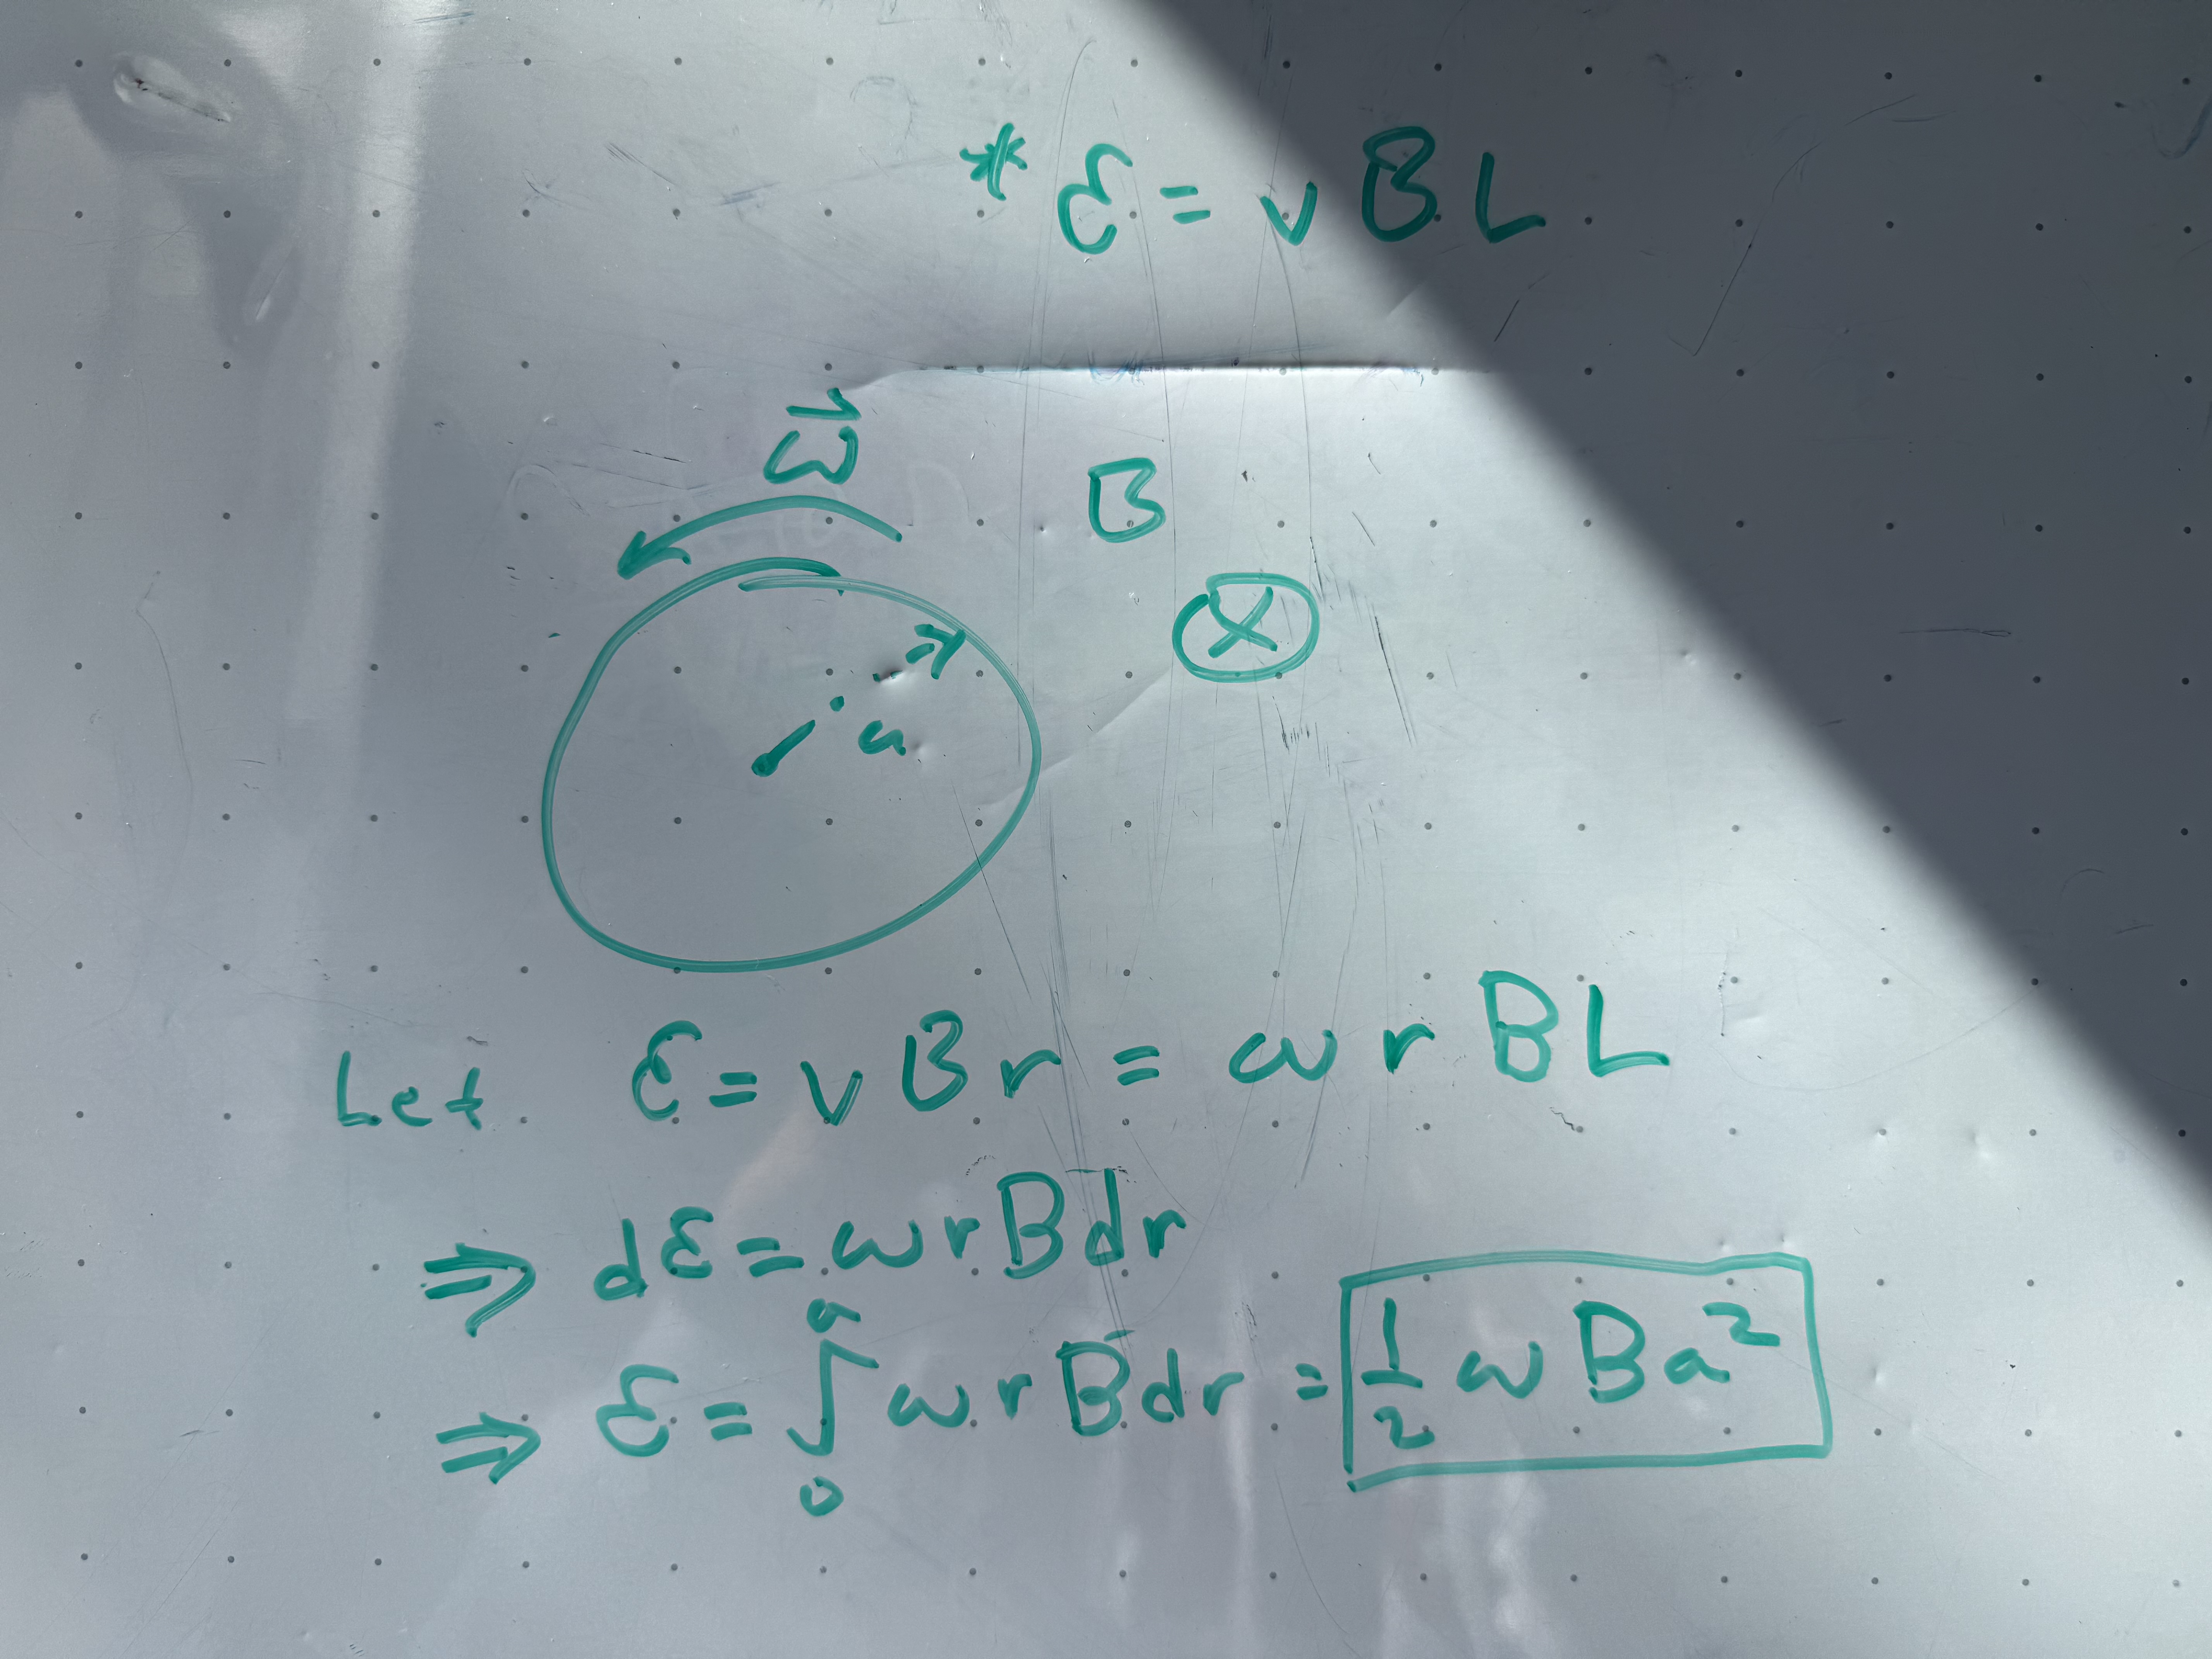 * ℰ = vBL
ω⃗
B
a
Let ℰ = vBr = ωrBL
⇒ dℰ = ωrBdr
⇒ ℰ = ∫₀ᵃ ωrBdr = 1/2 ωBa²